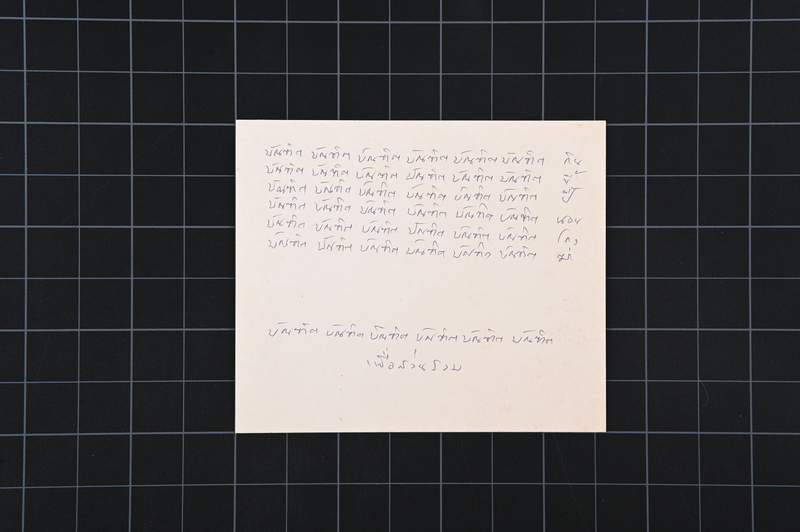 บัณฑิต บัณฑิต บัณฑิต บัณฑิต บัณฑิต บัณฑิต กิน
บัณฑิต บัณฑิต บัณฑิต บัณฑิต บัณฑิต บัณฑิต ขี้
บัณฑิต บัณฑิต บัณฑิต บัณฑิต บัณฑิต บัณฑิต ปี้
บัณฑิต บัณฑิต บัณฑิต บัณฑิต บัณฑิต บัณฑิต นอน
บัณฑิต บัณฑิต บัณฑิต บัณฑิต บัณฑิต บัณฑิต โกง
บัณฑิต บัณฑิต บัณฑิต บัณฑิต บัณฑิต บัณฑิต
บัณฑิต บัณฑิต บัณฑิต บัณฑิต บัณฑิต บัณฑิต
เพื่อส่วนรวม